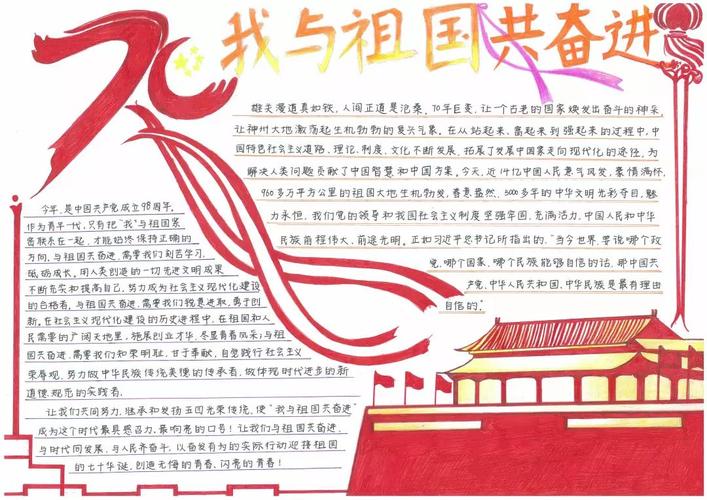 70
我与祖国共奋进
雄关漫道真如铁，人间正道是沧桑。70年巨变，让一个古老的国家焕发出奋斗的神采，
让神州大地激荡起生机勃勃的复兴气象。在从站起来、富起来到强起来的过程中，中
国特色社会主义道路、理论、制度、文化不断发展，拓展了发展中国家走向现代化的途径，为
解决人类问题贡献了中国智慧和中国方案。今天，近14亿中国人民意气风发，豪情满怀，
960多万平方公里的祖国大地生机勃发，春意盎然，5000多年的中华文明光彩夺目，魅
力永恒，我们党的领导和我国社会主义制度坚强牢固，充满活力，中国人民和中华
民族前程伟大、前途光明。正如习近平总书记所指出的，“当今世界，要说哪个政
党，哪个国家、哪个民族能够自信的话，那中国共
产党，中华人民共和国，中华民族是最有理由
自信的。”
今年，是中国共产党成立98周年。
作为青年一代，只有把“我”与祖国紧
密联系在一起，才能始终保持正确的
方向。与祖国共奋进，需要我们刻苦学习，
砥砺成长。用人类创造的一切先进文明成果
不断充实和提高自己，努力成为社会主义现代化建设
的合格者。与祖国共奋进，需要我们锐意进取，勇于创
新。在社会主义现代化建设的历史进程中，在祖国和人
民需要的广阔天地里，施展创业才华，尽显青春风采；与祖
国共奋进，需要我们知荣明耻，甘于奉献，自觉践行社会主义
荣辱观，努力做中华民族传统美德的传承者，做体现时代进步的新
道德规范的实践者。
让我们共同努力，继承和发扬五四光荣传统，使“我与祖国共奋进”
成为这个时代最具感召力、最响亮的口号！让我们与祖国共奋进，
与时代同发展，与人民齐奋斗，以奋发有为的实际行动迎接祖国
的七十华诞，创造无悔的青春、闪亮的青春！